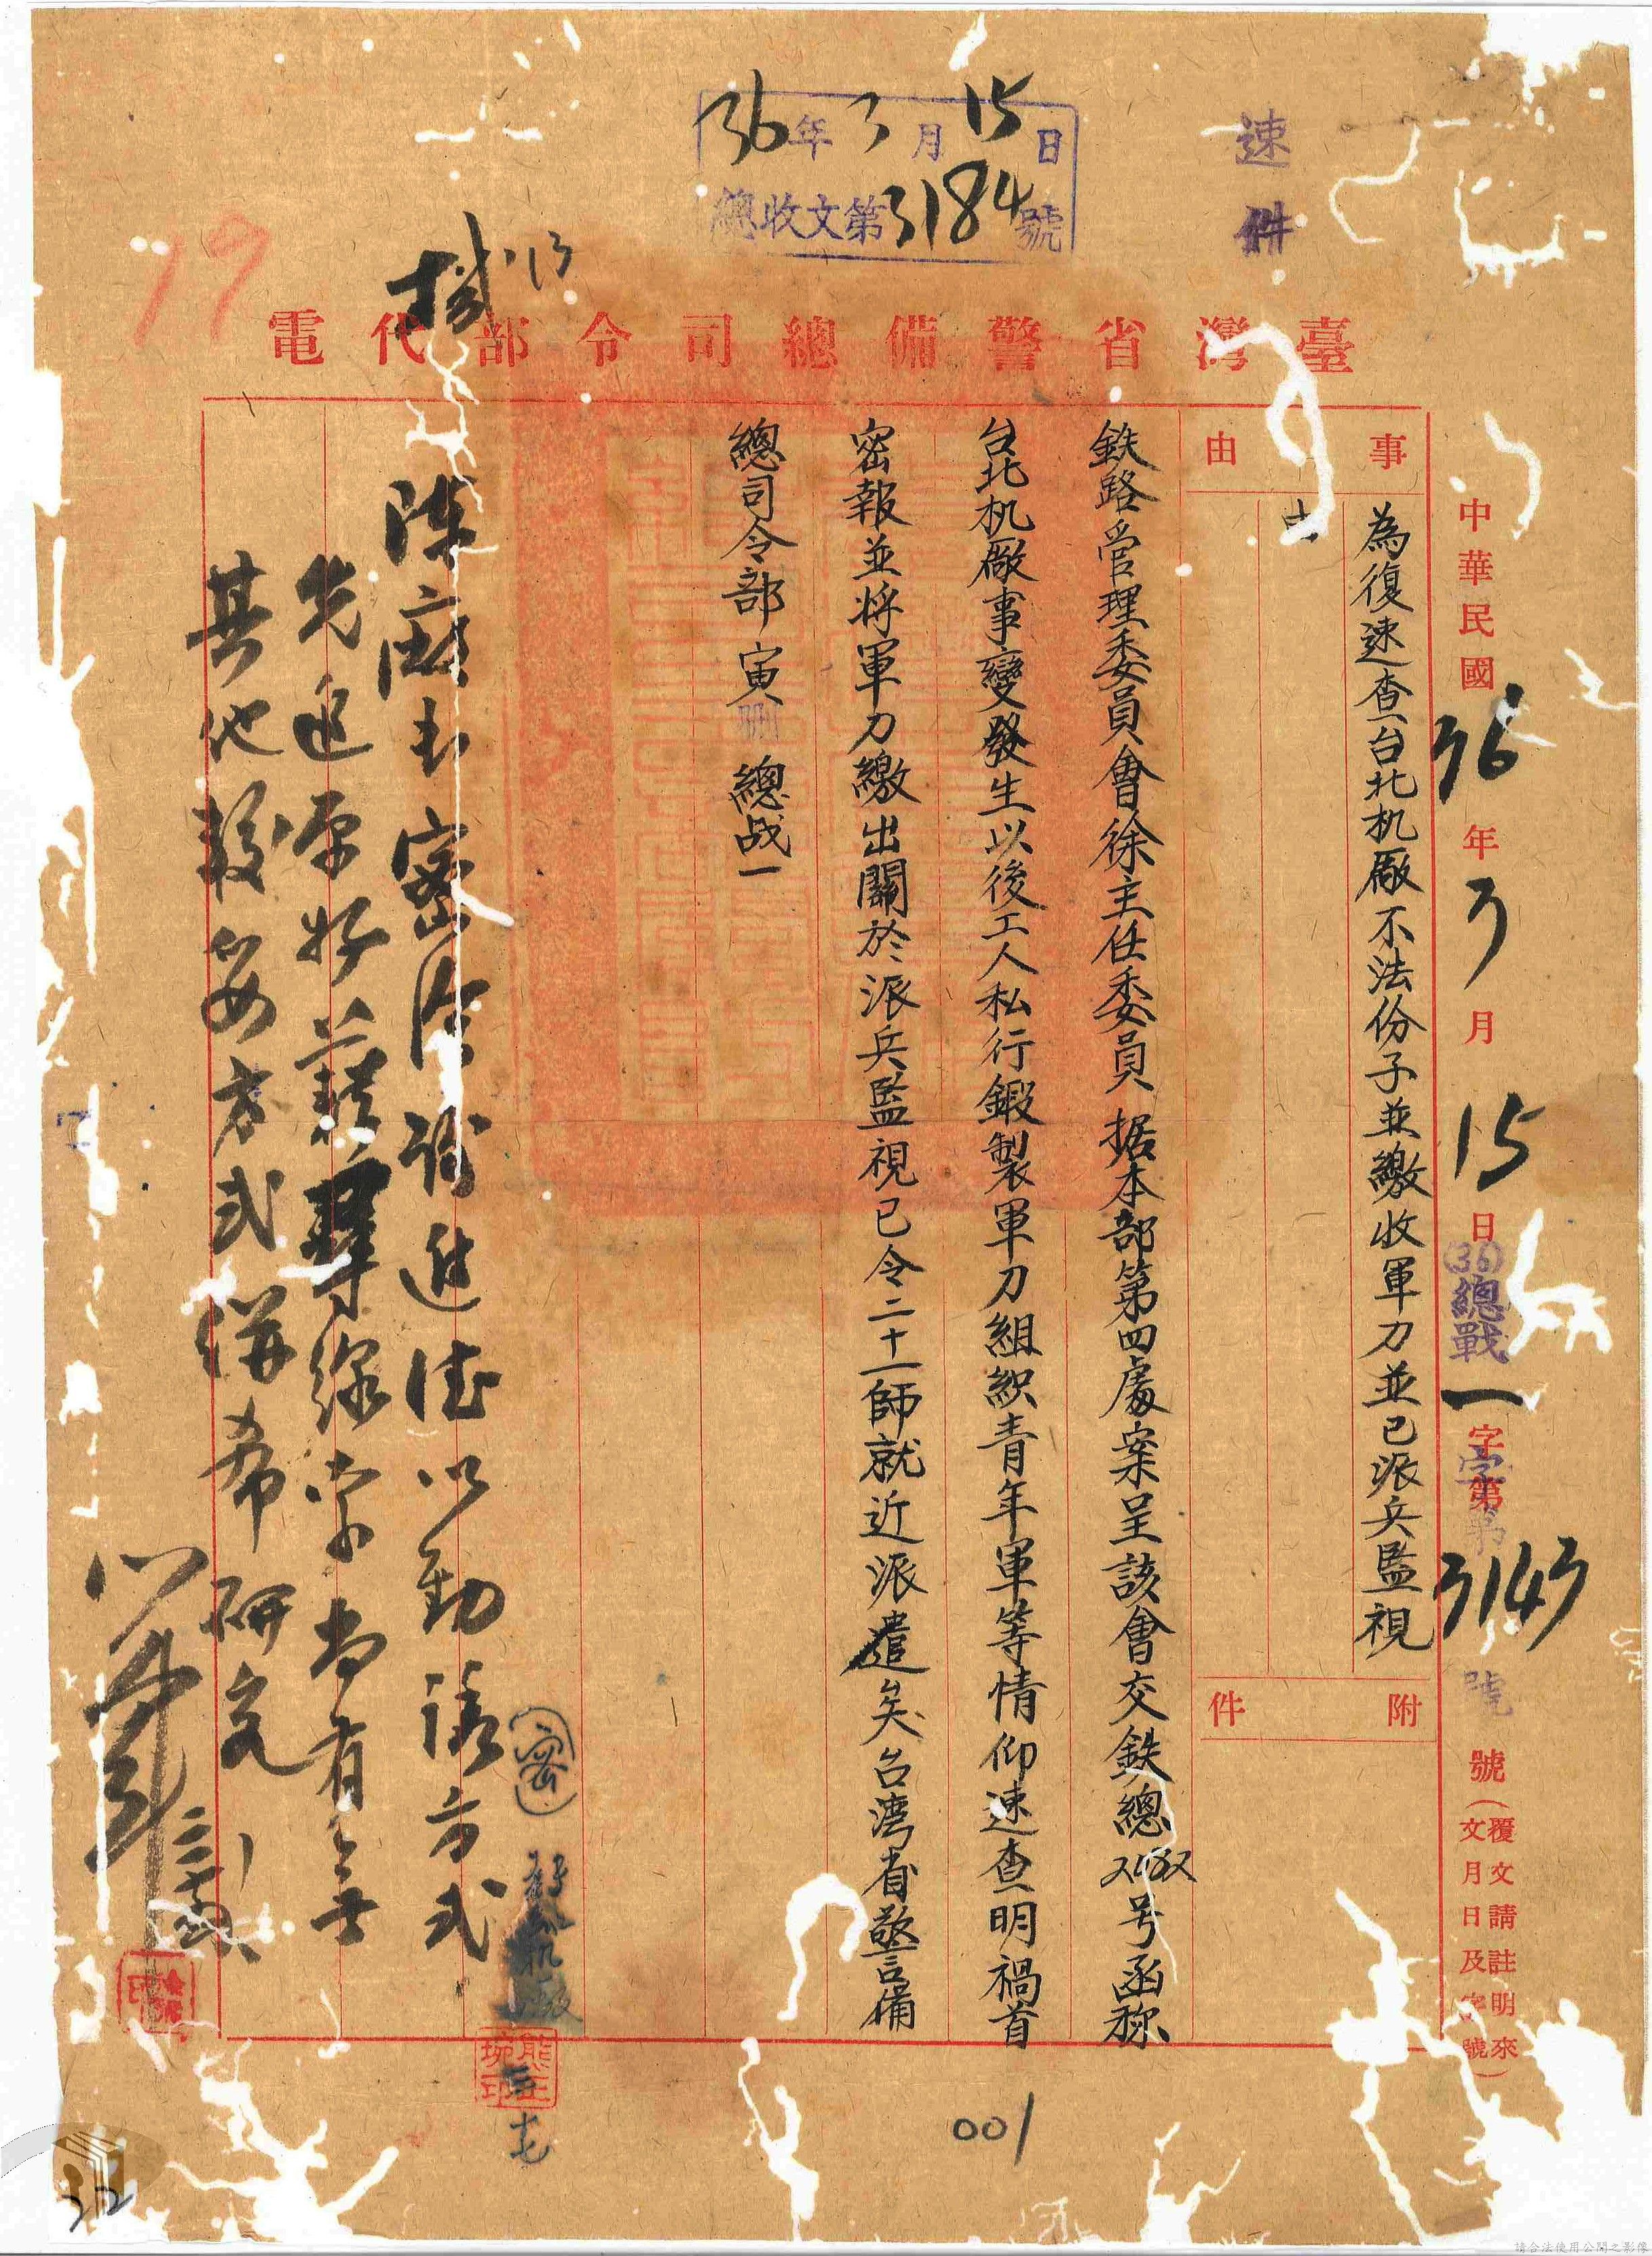 速件
36年3月15日
總收文第3184號
19
臺灣省警備總司令部代電
中華民國36年3月15日
(36)總戰一字第3143號
號(覆文請註明來文月日及字號)
事由
為復速查台北机廠不法份子並繳收軍刀並已派兵監視
由
附件
鉄路管理委員會徐主任委員 据本部第四處案呈該會交鉄總號函称
台北机廠事變發生以後工人私行鍛製軍刀組織青年軍等情仰速查明禍首
密報並將軍刀繳出關於派兵監視已令二十一師就近派遣矣台灣省警備
總司令部寅刪總战一
密
陳廠長密洽詢進德以勸誘方式
先追原料藉尋線索尚有無
其他較妥方式併希研究
001
22
請合法使用公開之影像